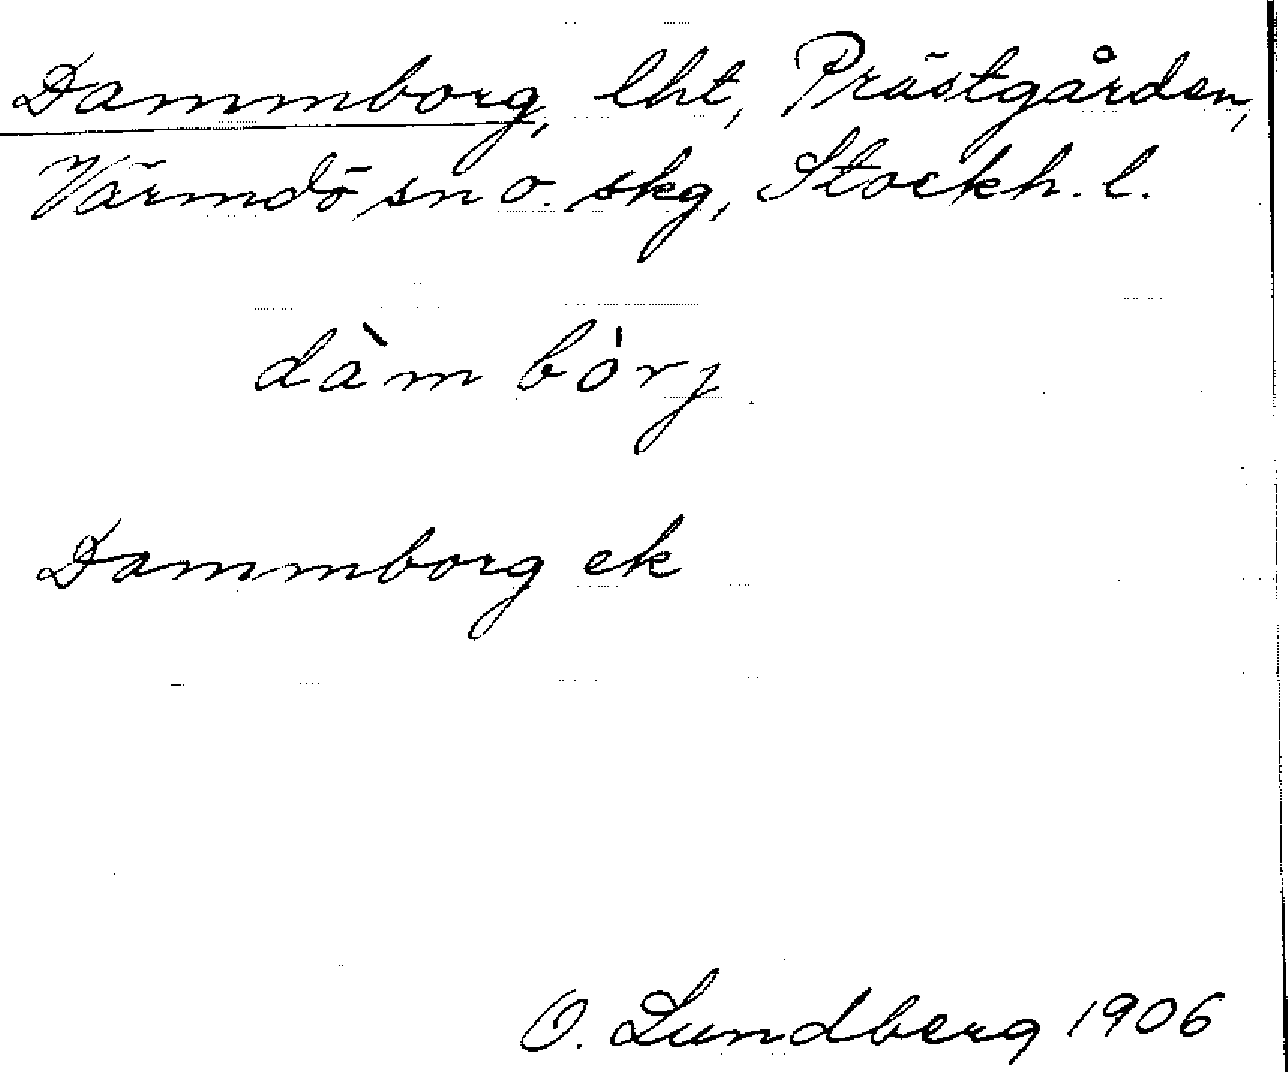 Dammborg, lht, Prästgården,
Värmdö sn o. skg, Stockh. l.
dàm bòrj
Dammborg ek
O. Lundberg 1906